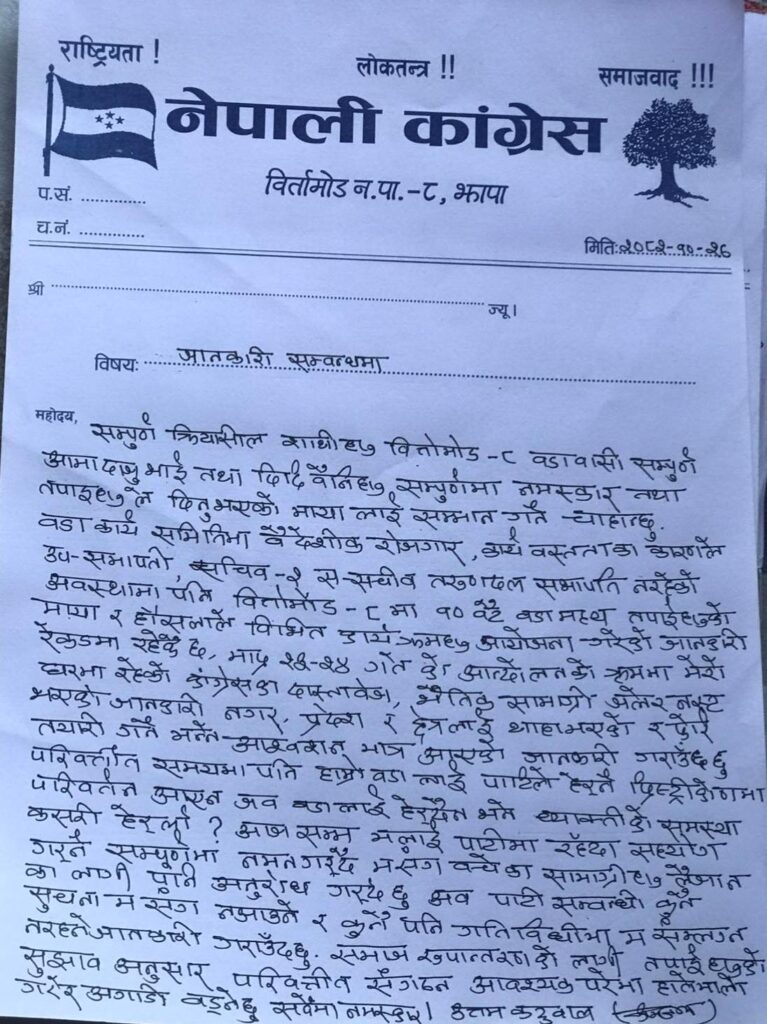 राष्ट्रियता !
लोकतन्त्र !!
समाजवाद !!!
नेपाली कांग्रेस
विर्तामोड न.पा.-८, झापा
प.सं. .............
च.नं. .............
मितिः २०८२-१०-२६
श्री ........................ ज्यू।
विषयः जानकारी सम्वन्धमा
महोदय,
सम्पुर्ण क्रियासील साथीहरु विर्तामोड -८ वडावासी सम्पुर्ण
आमा दाजु भाई तथा दिदि वैनिहरु सम्पुर्णमा नमस्कार तथा
तपाईहरुले दिनुभएको माया लाई सम्मान गर्न चाहान्छु.
वडा कार्य समितिमा वैदेशीक रोजगार, कार्य वस्तताका कारणले
उप-सभापती, सचिव-१ स-सचीव तरुणदल सभापति नरहेको
अवस्थामा पनि विर्तामोड -८ मा १० वटै वडा मध्य तपाईहरुको
माया र हौसलाले विभिन्न कार्यक्रमहरु आयोजना गरेको जानकारी
रेकडमा रहेकै छ, भाद्र २३-२४ गते को आन्दोलनको क्रममा मेरो
घरमा रहेको कांग्रेसका दास्तावेज, भैतिक सामाग्री जलेर नस्ट
भएको जानकारी नगर, प्रदेश र क्षेत्रलाई थाहा भएको र फेरि
तयारी गर्ने भन्ने आश्वाशन मात्र आएको जानकारी गराउँदछु
परिवर्तीत समयमा पनि हाम्रो वडा लाई पार्टीले हेर्ने द्रिस्ट्रीकोणमा
परिवर्तन आएन जव वडालाई हेर्दैन भने व्याक्तीको समस्या
कसरी हेर्ला ? आज सम्म मलाई पार्टीमा रहदा सहयोग
गर्ने सम्पुर्णमा नमन गर्दै मसग वचेका सामाग्रीहरु लैजान
का लागी पुनि अनुरोध गर्दछु अव पार्टी सम्वन्धी कुनै
सुचना म संग नजाउने र कुनै पनि गतिविधीमा म संम्लग्न
नरहने जानकारी गराउँदछु. समाज रुपान्तरणको लागी तपाईहरुको
सुझाव अनुसार परिवर्तीत संगठन आवश्यक परेमा हातेमालो
गरेर अगाडी वढ्नेछु सवैमा नमस्कार। उत्तम कटुवाल